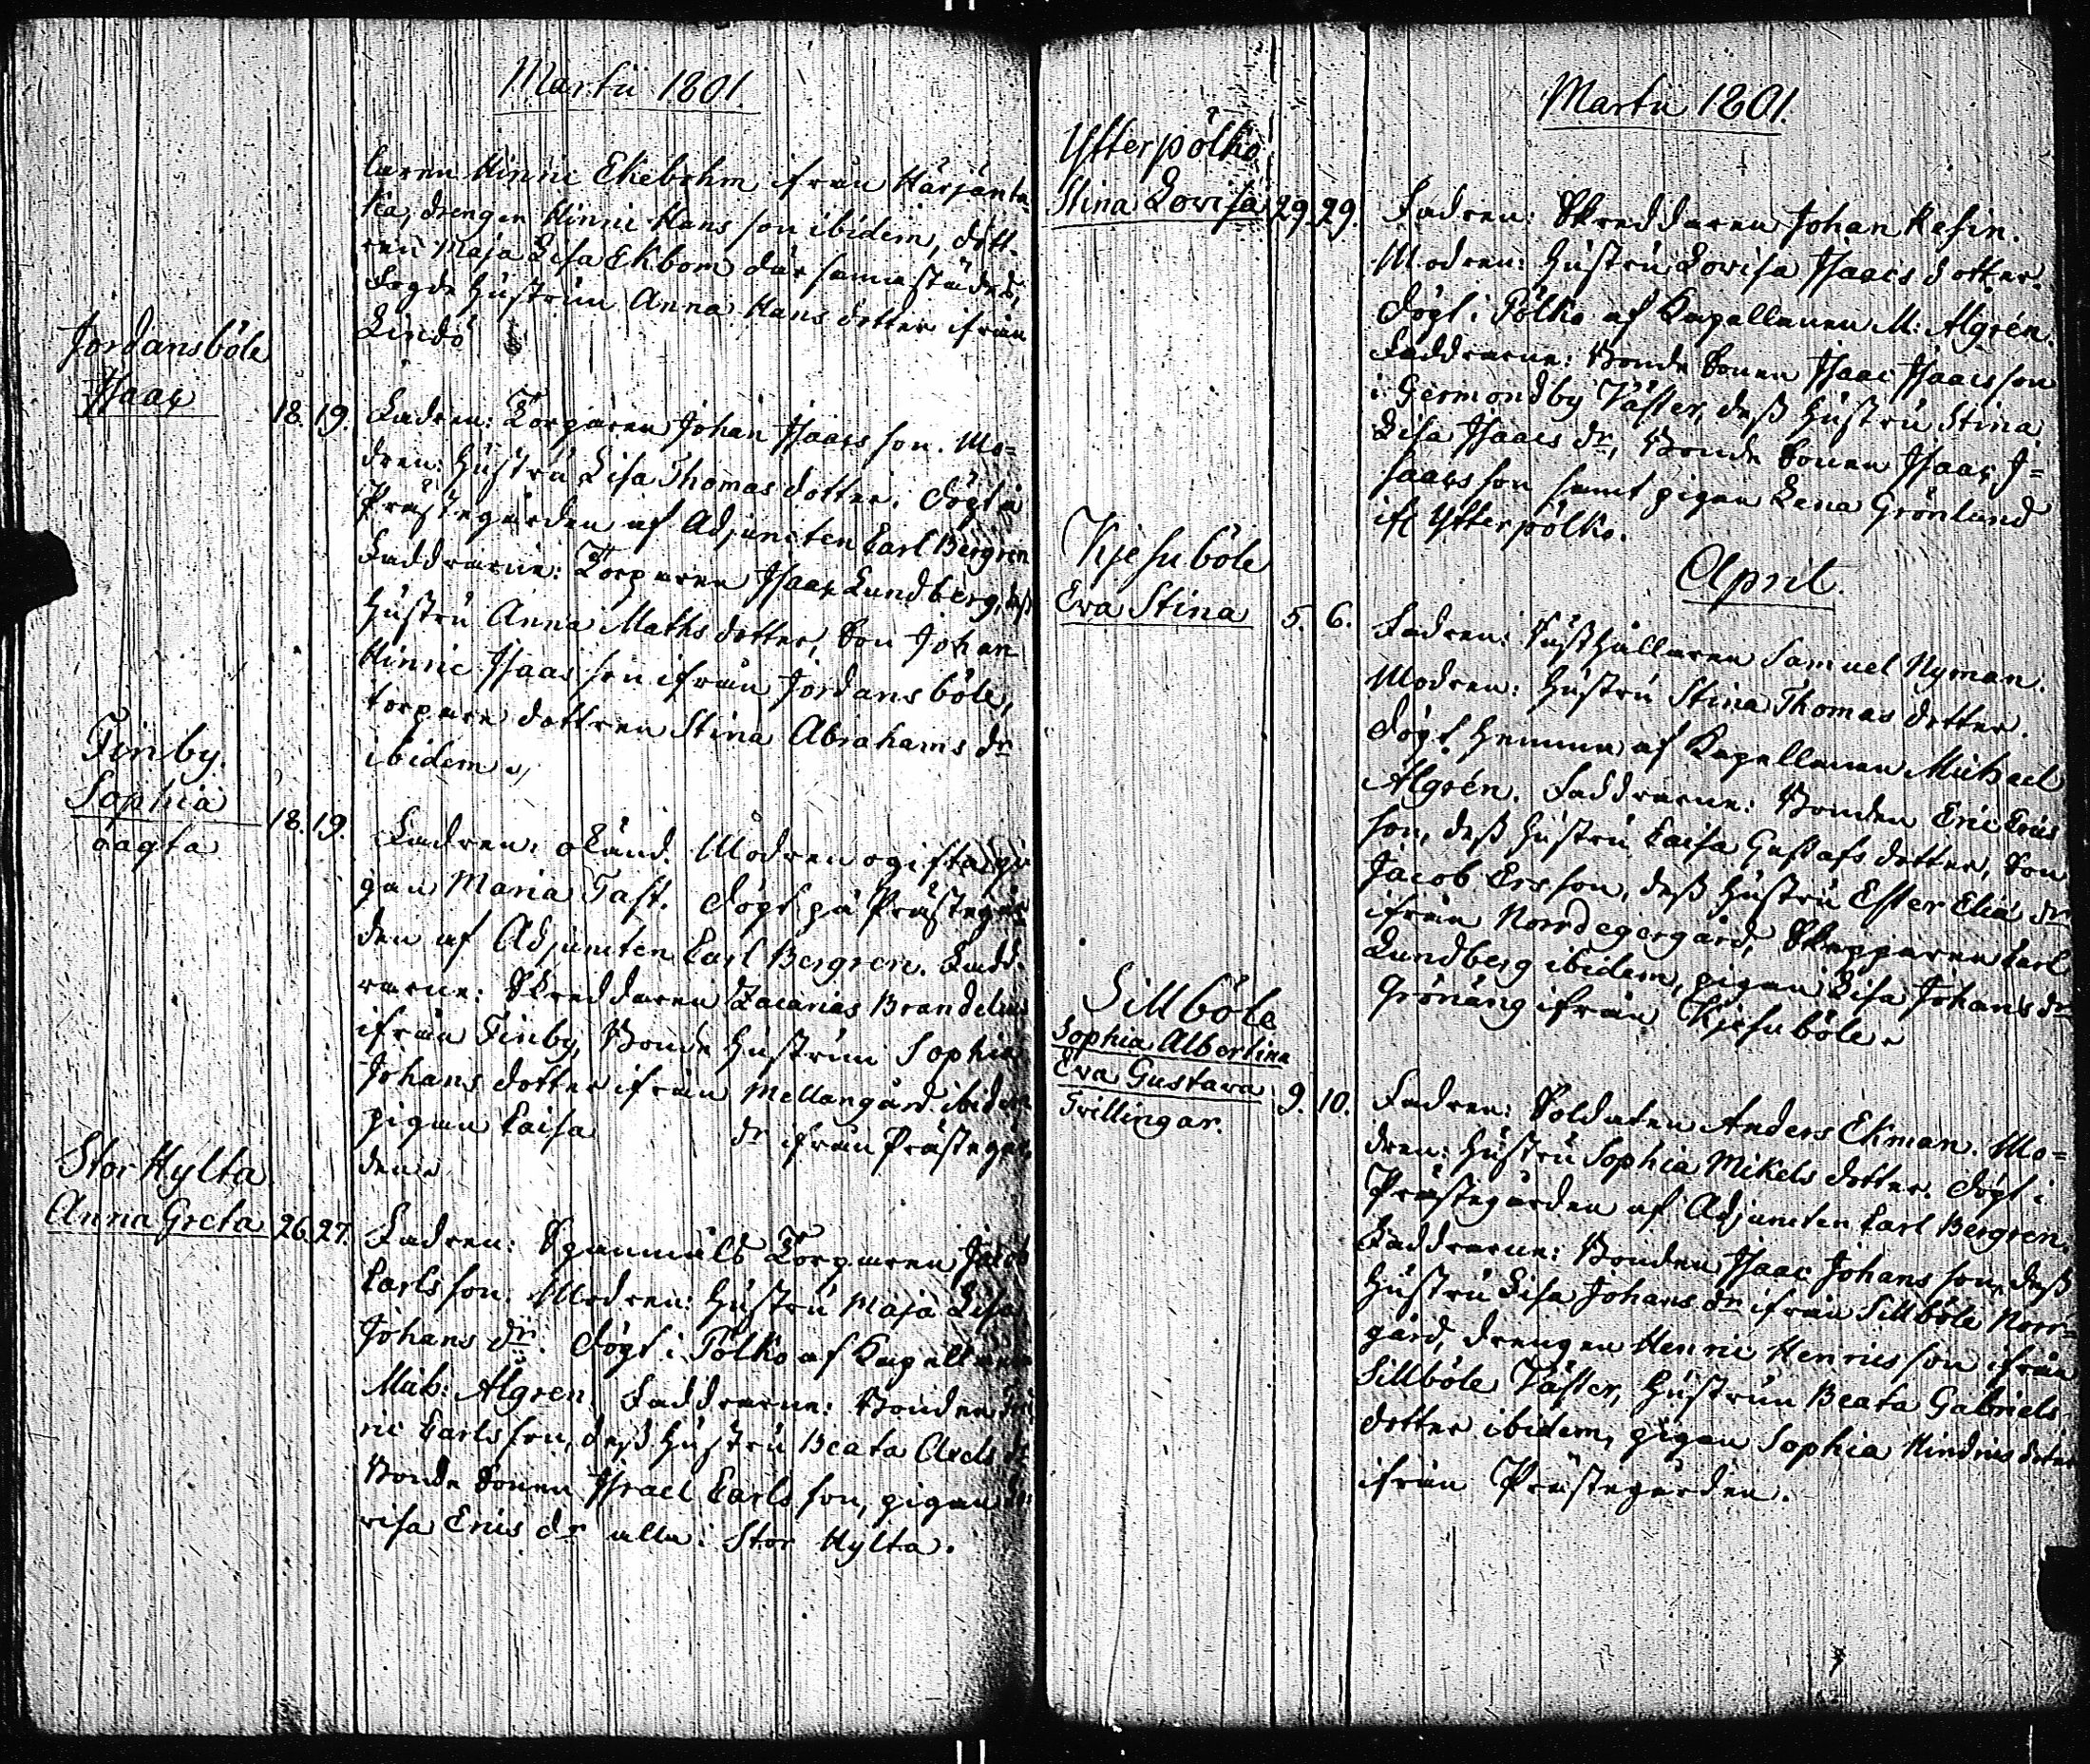 Martii 1801.
laren Hinric Ekebohm ifrån Härjänta-
ka, drengen Hinric Hans son ibidem, dott-
ren Maja Lisa Ekbom där sammastädes,
Fogde Hustrun Anna Hans dotter ifrån
Lindö
Jordansböle
Isaac
18. 19. Fadren: Torparen Johan Isaacs son. Mo=
dren: Hustru Lisa Thomas dotter. Döpt i
Prästegården af Adjuncten Carl Bergren
Faddrarne: Torparen Isaac Lundberg, dess
Hustru Anna Maths dotter, Son Johan
Hinric Isaacs son ifrån Jordansböle,
torpare dottren Stina Abrahams dr
ibidem.
Finby
Sophia
oägta
18. 19. Fadren: okänd. Modren ogifta pi
gan Maria Tast. Döpt på Prästegår
den af Adjuncten Carl Bergren. Fadd-
rarne: Skreddaren Zacarias Brandelius
ifrån Finby, Bonde Hustrun Sophia
Johans dotter ifrån Mellangård ibidem
pigan Caisa dr ifrån Prästegår
den.
Stor Hylta
Anna Greta
26. 27. Fadren: Spanmåls Torparen Jacob
Carls son. Modren: Hustru Maja Lisa
Johans dr. Döpt i Pölkö af Kapellanen
Mich: Algren. Faddrarne: Bonden
ric Carls son, dess Hustru Beata Axels dr
Bonde Sonen Israel Carls son, pigan Lo
visa Erics dr alla i Stor Hylta.
Martii 1801.
Ytterpölkö
Stina Lovisa
29. 29. Fadren: Skreddaren Johan Resin.
Modren: Hustru Lovisa Isaacs dotter.
Döpt i Pölkö af Kapellanen M: Algrén.
Faddrarne: Bonde Sonen Isaac Isaacs son
i Germondby Väster, dess Hustru Stina
Lisa Isaacs dr, Bonde Sonen Isaac I=
saacs son samt pigan Lena Grönlund
ifr Ytterpölkö.
April.
Kjesuböle
Eva Stina
5. 6. Fadren: Rusthållaren Samuel Nyman.
Modren: Hustru Stina Thomas dotter.
Döpt hemma af Kapellanen Michael
Algrén. Faddrarne: Bonden Eric Erics
son, dess Hustru Caisa Gustafs dotter, Son
Jacob Ers son, dess Hustru Ester Elia dr
ifrån Norrdegergård, Skepparen Carl
Lundberg ibidem, pigan Lisa Johans dr
Grönäng ifrån Kjesuböle.
Sillböle
Sophia Albertina
Eva Gustava
Tvillingar.
9. 10. Fadren: Soldaten Anders Ekman. Mo=
dren: Hustru Sophia Mikels dotter. Döpt i
Prästegården af Adjuncten Carl Bergren.
Faddrarne: Bonden Isaac Johans son, dess
Hustru Lisa Johans dr ifrån Sillböle Norr=
gård, drengen Henric Henrics son ifrån
Sillböle Väster, Hustrun Beata Gabriels
dotter ibidem, pigan Sophia Hindrics doter
ifrån Prästegården.